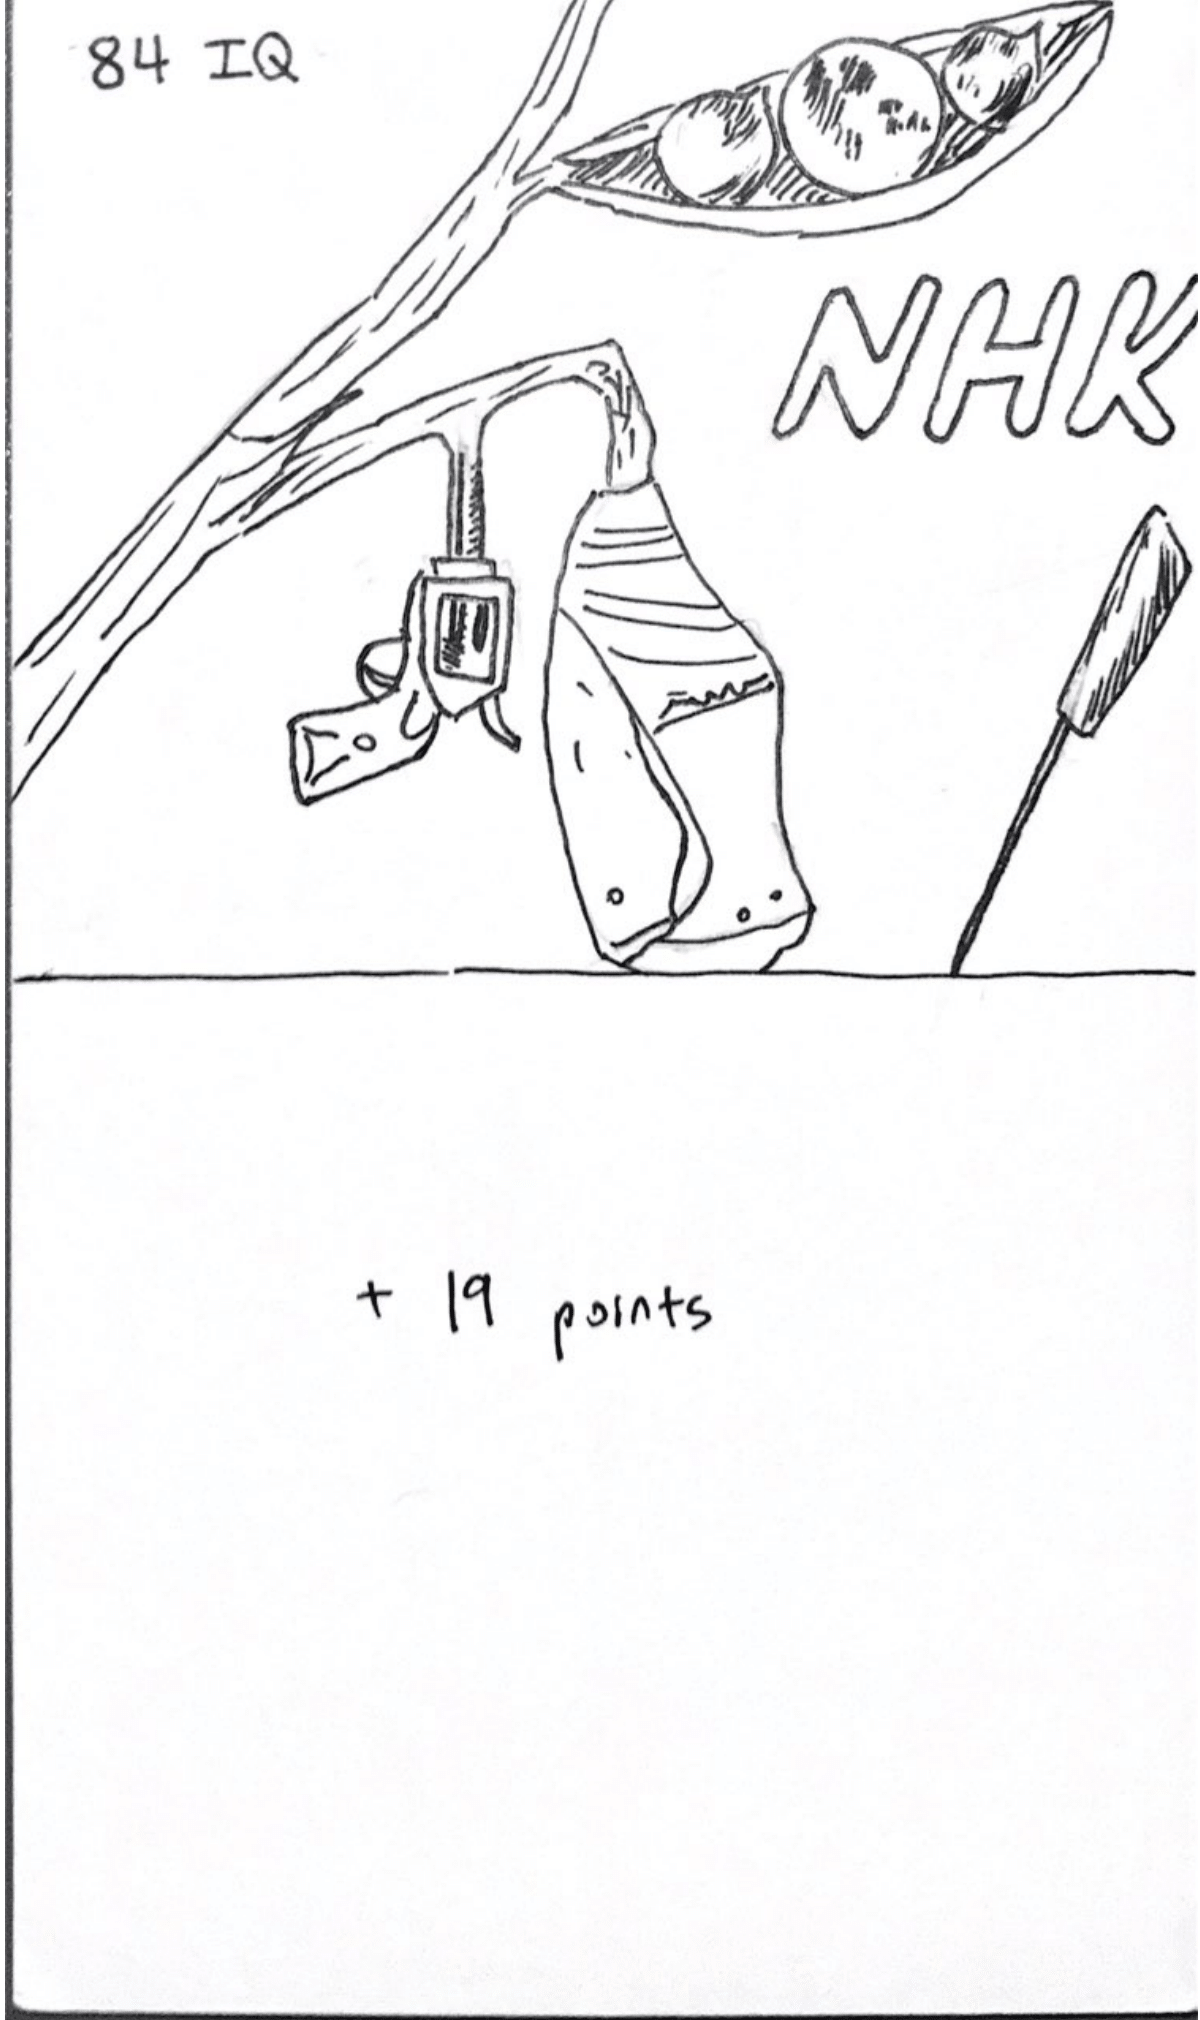 84 IQ
NHK
+ 19 points